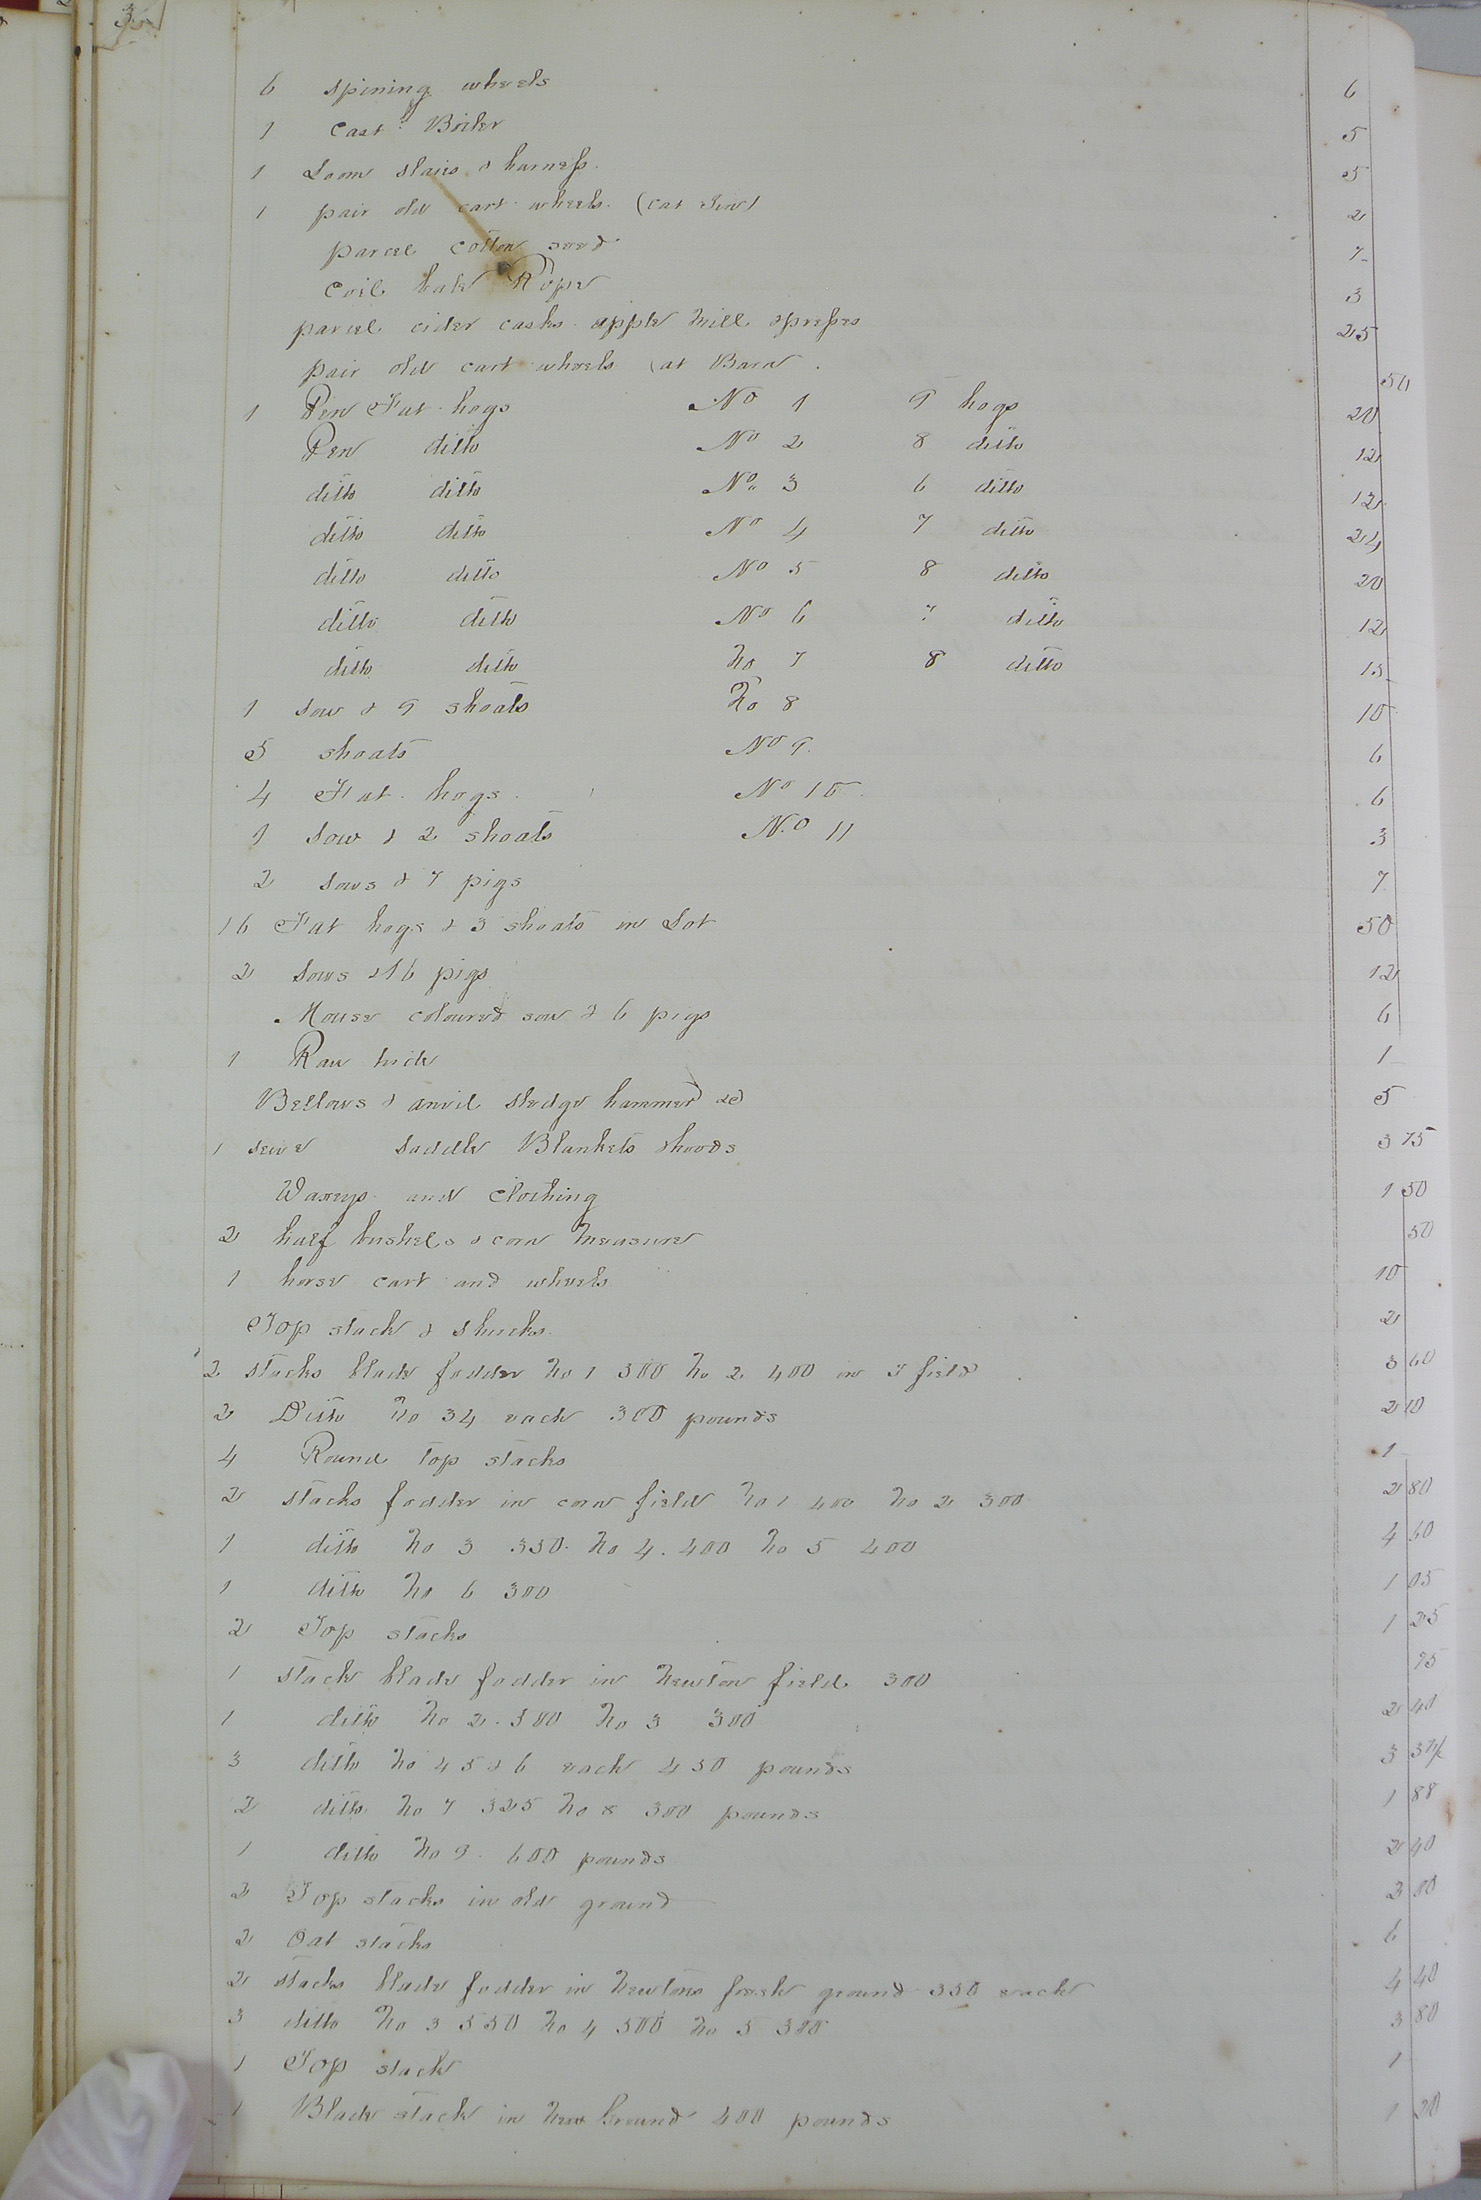 3
6 spining wheels 6
1 Cast Boiler 5
1 Loom slaies & harness 5
1 pair old cart wheels (at Gin) 2
parcel cotton seed 7
Coil bale Rope 3
parcel cider casks apple Mill & presses 25
pair old cart wheels (at Barn 50
1 Pen Fat hogs No 1 9 hogs 20
Pen ditto No 2 8 ditto 12
ditto ditto No 3 6 ditto 12
ditto ditto No 4 7 ditto 24
ditto ditto No 5 8 ditto 20
ditto ditto No 6 7 ditto 12
ditto ditto No 7 8 ditto 15
1 Sow & 9 shoats No 8 10
5 shoats No 9 6
4 Fat hogs No 10 6
1 Sow & 2 shoats No 11 3
2 Sows & 7 pigs 7
16 Fat hogs & 3 shoats in Lot 50
2 Sows & 16 pigs 12
Mouse coloured sow & 6 pigs 6
1 Raw hide 1
Bellows & anvil sledge hammer &c 5
1 saddle Blankets 3 75
and Clothing 1 50
2 half bushels & corn Measure 50
1 horse cart and wheels 10
Top stack & shucks 2
2 stacks blade fodder No 1 300 No 2 400 in field 3 60
2 Ditto No 3 4 each 300 pounds 2 10
4 Round top stacks 1
2 stacks fodder in corn field No 1 400 No 2 300 2 80
1 ditto No 3 350 No 4 400 No 5 400 4 60
1 ditto No 6 300 1 05
2 Top stacks 1 25
1 stack blade fodder in Newton field 300 75
1 ditto No 2 300 No 3 300 2 40
3 ditto No 4 5 & 6 each 450 pounds 3 37½
2 ditto No 7 325 No 8 300 pounds 1 88
1 ditto No 9 600 pounds 2 40
2 Top stacks in old ground 2 00
2 Oat stacks 6
2 stacks blade fodder in Newtons fresh ground 550 each 4 40
3 ditto No 3 550 No 4 500 No 5 300 3 80
1 Top stack 1
1 Blade stack in New Ground 400 pounds 1 20